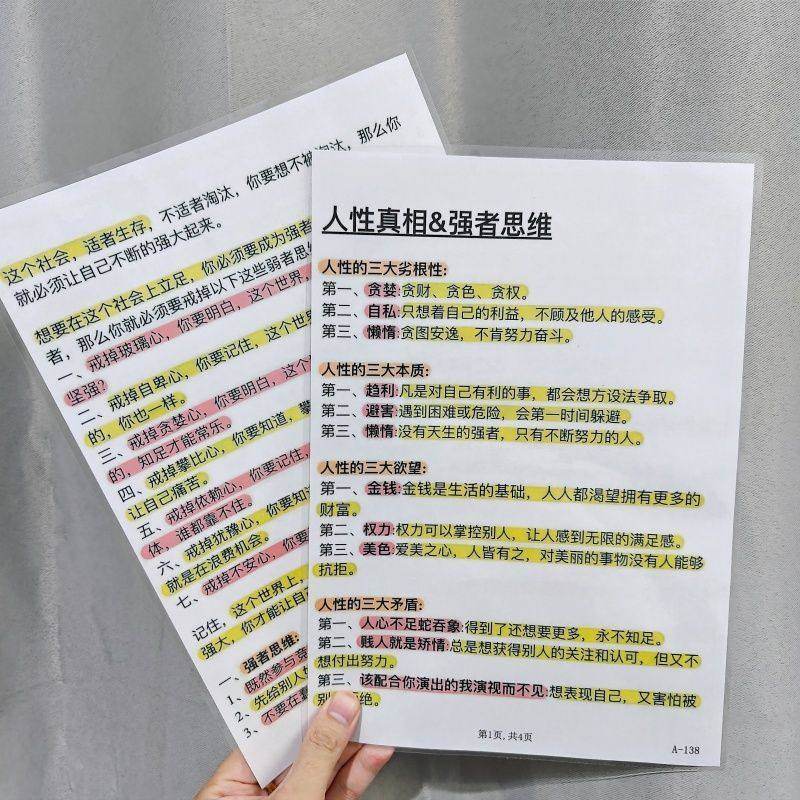 人性真相&强者思维
人性的三大劣根性:
第一、贪婪:贪财、贪色、贪权。
第二、自私:只想着自己的利益，不顾及他人的感受。
第三、懒惰:贪图安逸，不肯努力奋斗。
人性的三大本质:
第一、趋利:凡是对自己有利的事，都会想方设法争取。
第二、避害:遇到困难或危险，会第一时间躲避。
第三、懒惰:没有天生的强者，只有不断努力的人。
人性的三大欲望:
第一、金钱:金钱是生活的基础，人人都渴望拥有更多的
财富。
第二、权力:权力可以掌控别人，让人感到无限的满足感。
第三、美色:爱美之心，人皆有之，对美丽的事物没有人能够
抗拒。
人性的三大矛盾:
第一、人心不足蛇吞象:得到了还想要更多，永不知足。
第二、贱人就是矫情:总是想获得别人的关注和认可，但又不
想付出努力。
第三、该配合你演出的我演视而不见:想表现自己，又害怕被
别 绝。
第1页,共4页
A-138
这个社会，适者生存，不适者淘汰，你要想不被淘汰，那么你
就必须让自己不断的强大起来。
想要在这个社会上立足，你必须要成为强者
者，那么你就必须要戒掉以下这些弱者思
一、戒掉玻璃心，你要明白，这个世界，
坚强?
二、戒掉自卑心，你要记住，这个世
的，你也一样。
三、戒掉贪婪心，你要明白，这个
的，知足才能常乐。
四、戒掉攀比心，你要知道，攀
让自己痛苦。
五、戒掉依赖心，你要记住，
体，谁都靠不住。
六、戒掉犹豫心，你要知
就是在浪费机会。
七、戒掉不安心，你要
记住，这个世界上，
强大，你才能让自
一、强者思维:
1、既然参与竞
2、先给别人
3、不要在